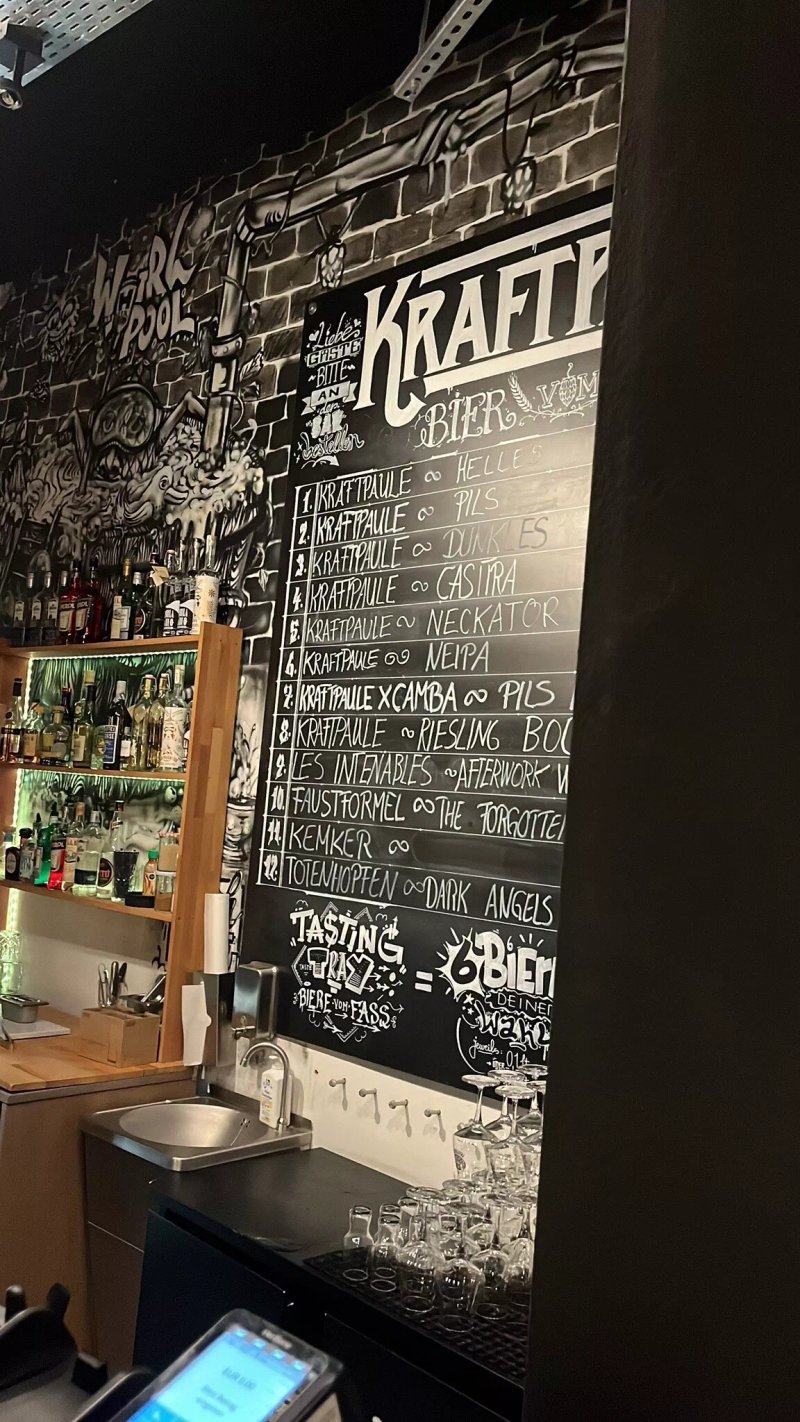 WHIRL
POOL
Liebe
GÄSTE
BITTE
AN
der
BAR
bestellen
KRAFTP
BIER VOM
1. KRAFTPAULE ~ HELLES
2. KRAFTPAULE ~ PILS
3. KRAFTPAULE ~ DUNKLES
4. KRAFTPAULE ~ CASITRA
5. KRAFTPAULE ~ NECKATOR
6. KRAFTPAULE ~ NEIPA
7. KRAFTPAULE X CAMBA ~ PILS
8. KRAFTPAULE ~ RIESLING BOC
9. LES INTENABLES ~ AFTERWORK W
10. FAUSTFORMEL ~ THE FORGOTTE
11. KEMKER ~
12. TOTENHOPFEN ~ DARK ANGELS
TASTING
TRAY
BIERE VOM FASS
=
6 BIER
DEINER
WAHL
jeweils
0,1
EUR 0,00